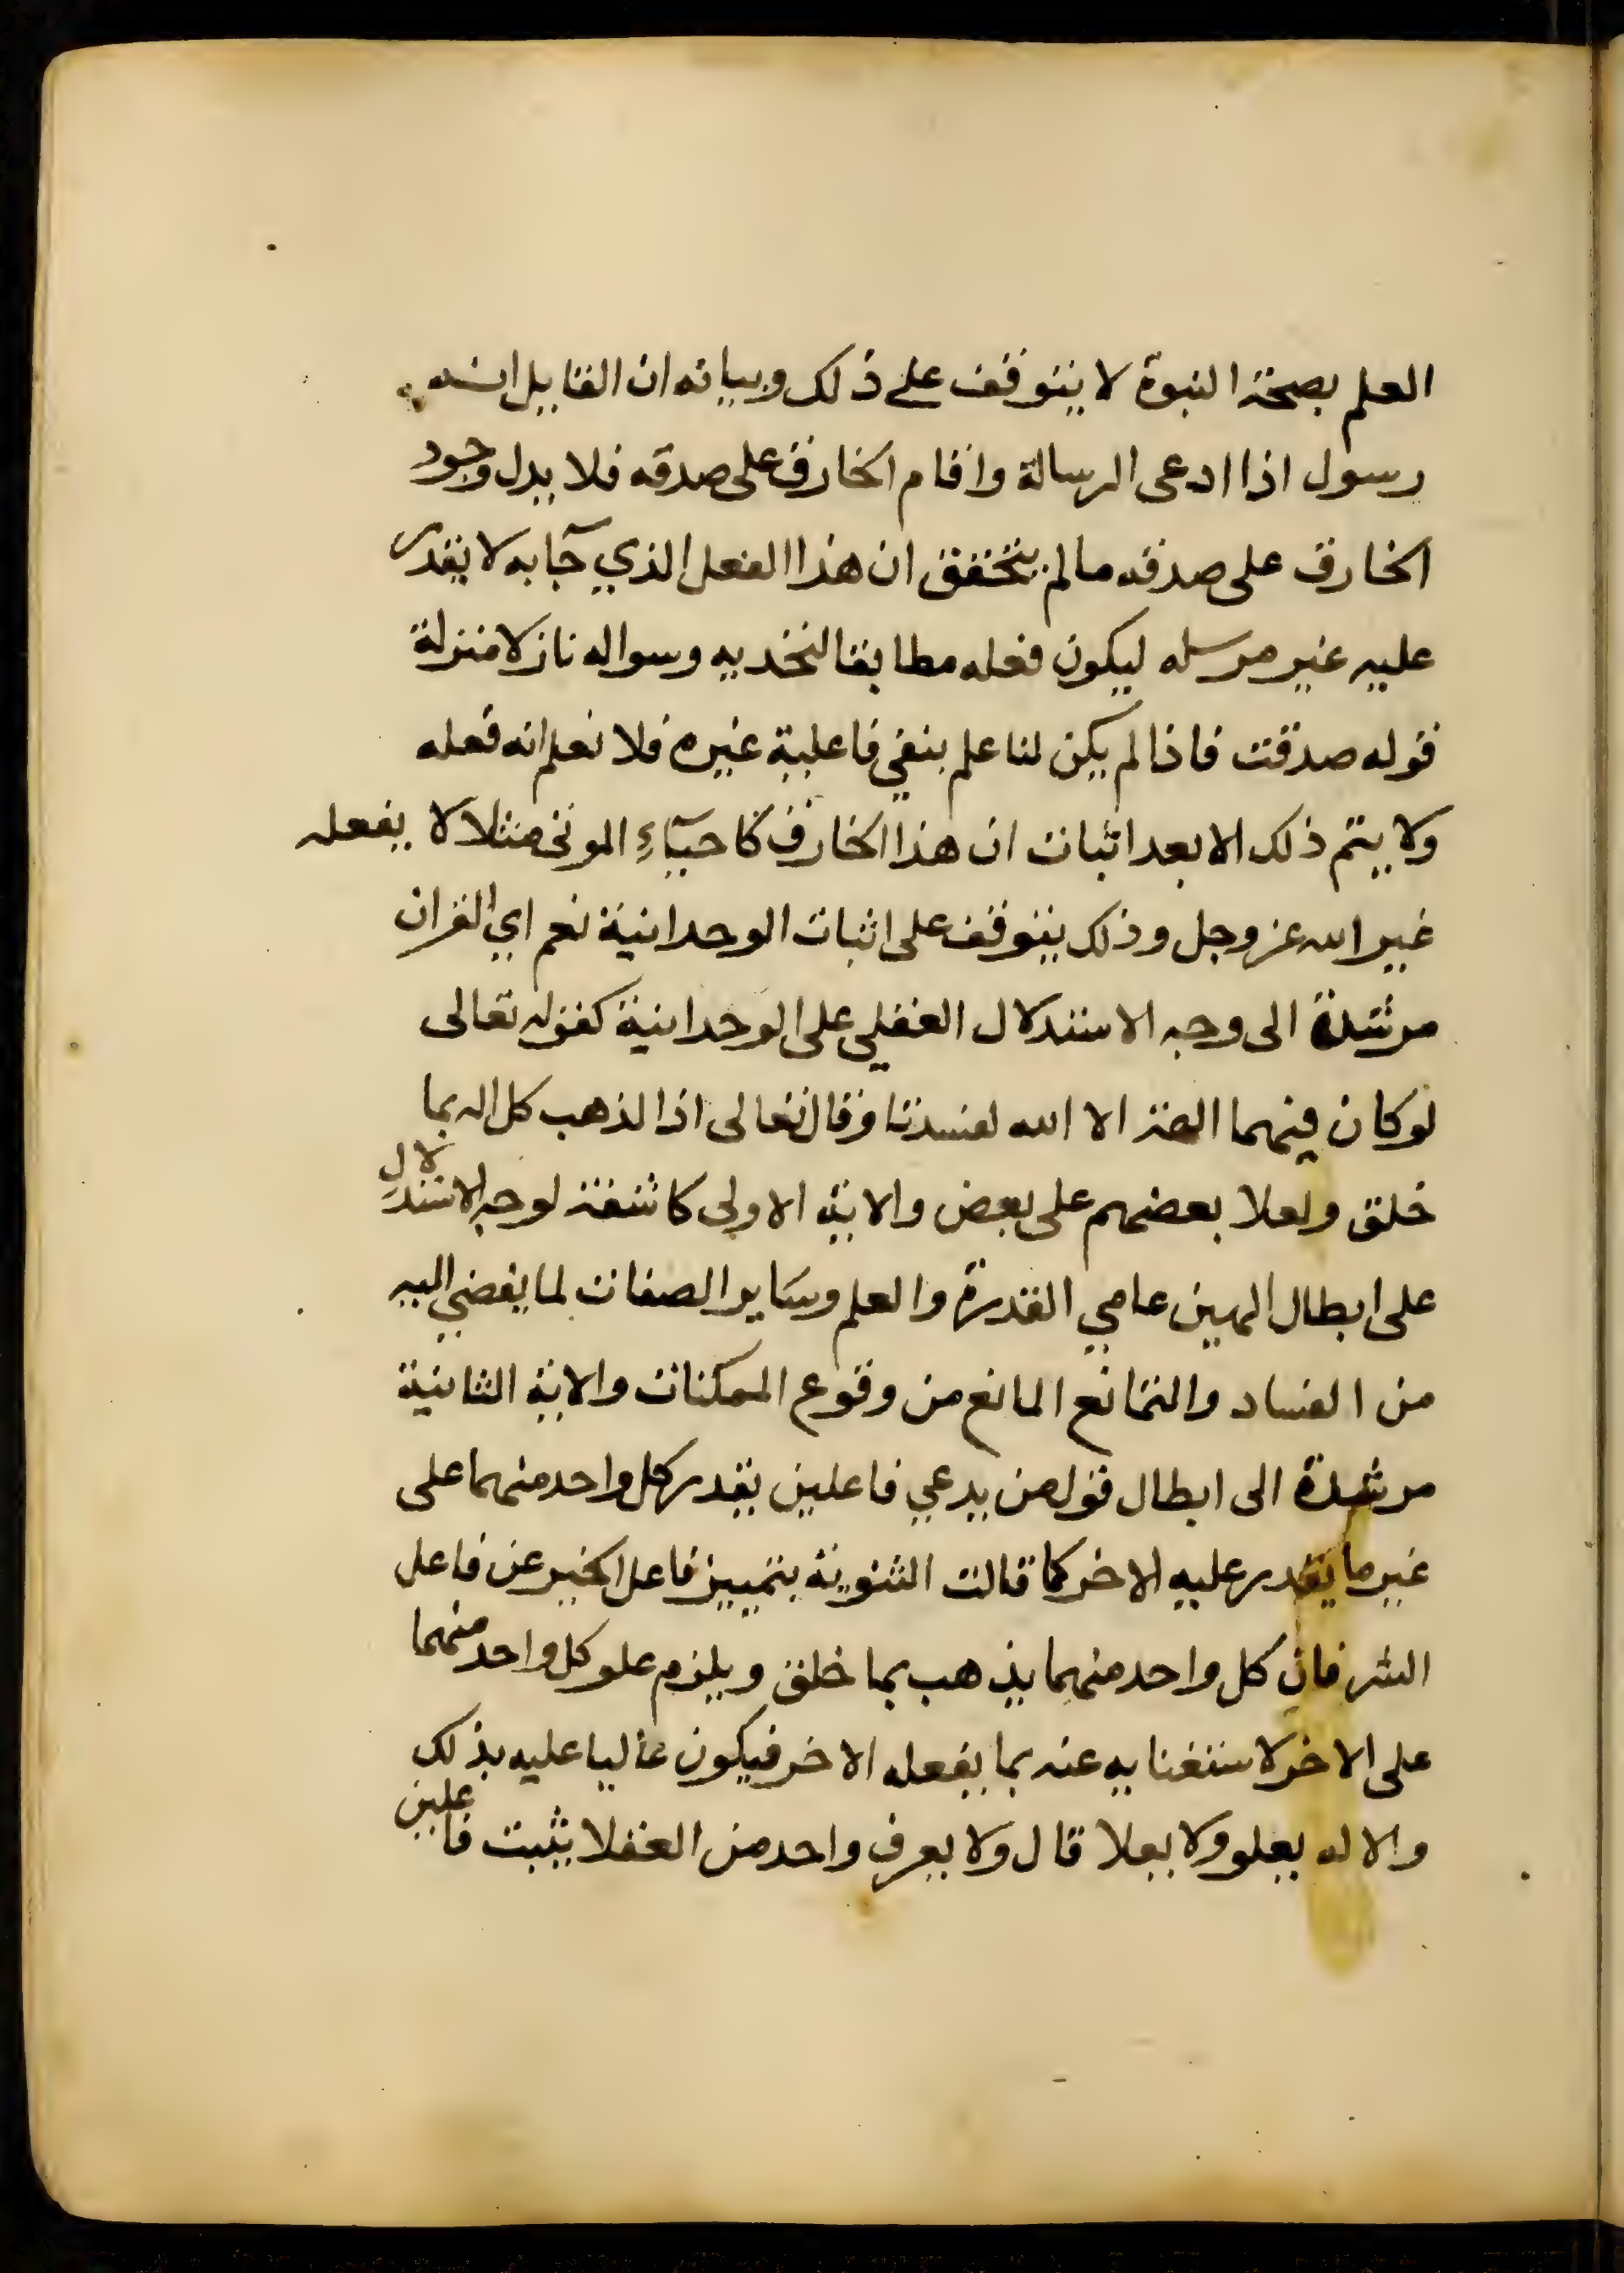 العلم بصحة النبوة لا يتوقف على ذلك وبيانه ان القايل انه
رسول اذا ادعى الرسالة واقام الخارق على صدقه فلا يدل وجود
الخارق على صدقه مالم يتحقق ان هذا الفعل الذي جآ به لا يقدر
عليه غير مرسله ليكون فعله مطابقا لتحديه وسواله نازلا منزلة
قوله صدقت فاذا لم يكن لنا علم بنفي فاعلية غيره فلا نعلم انه فعله
ولا يتم ذلك الا بعد اثبات ان هذا الخارق كاحيآءِ الموتى مثلا لا يفعله
غير الله عز وجل وذلك يتوقف على اثبات الوحدانية نعم اي القران
مرشدة الى وجه الاستدلال العقلي على الوحدانية كقوله تعالى
لو كان فيهما الهة الا الله لفسدتا وقال تعالى اذا لذهب كل اله بما
خلق ولعلا بعضهم على بعض والاية الاولى كاشفة لوجه الاستدلال
على ابطال الهين عامي القدرة والعلم وساير الصفات لما يفضي اليه
من الفساد والتمانع المانع من وقوع الممكنات والاية الثانية
مرشدة الى ابطال قول من يدعي فاعلين يقدر كل واحد منهما على
غير ما يقدر عليه الاخر كما قالت الثنوية بتمييز فاعل الخير عن فاعل
الشر فان كل واحد منهما يذهب بما خلق ويلزم علو كل واحد منهما
على الاخر لاستغنايه عنه بما يفعله الاخر فيكون عاليا عليه بذلك
والاله يعلو ولا يعلا قال ولا يعرف واحد من العقلا يثبت فاعلين